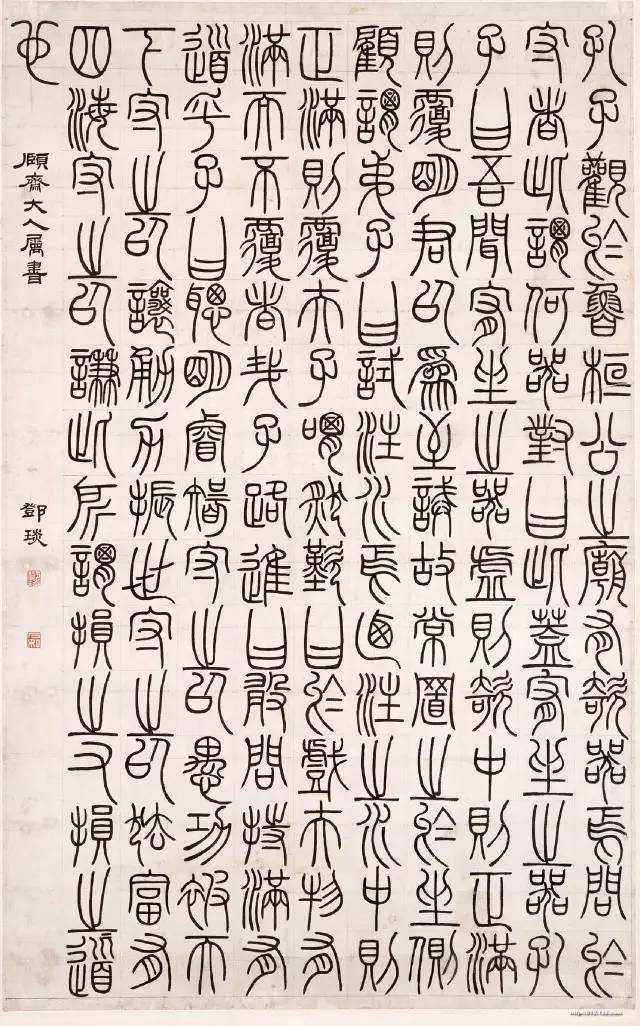 孔子觀於魯桓公之廟有欹器焉問於
守者此謂何器對曰此蓋宥坐之器孔
子曰吾聞宥坐之器虛則欹中則正滿
則覆明君以為至誡故常置之於坐側
顧謂弟子曰試注水焉乃注之水中則
正滿則覆夫子喟然歎曰於戲夫物有
滿而不覆者哉子路進曰敢問持滿有
道乎子曰聰明睿智守之以愚功被天
下守之以讓勇力振世守之以怯富有
四海守之以謙此所謂損之又損之道
也
頤齋大人屬書
鄧琰